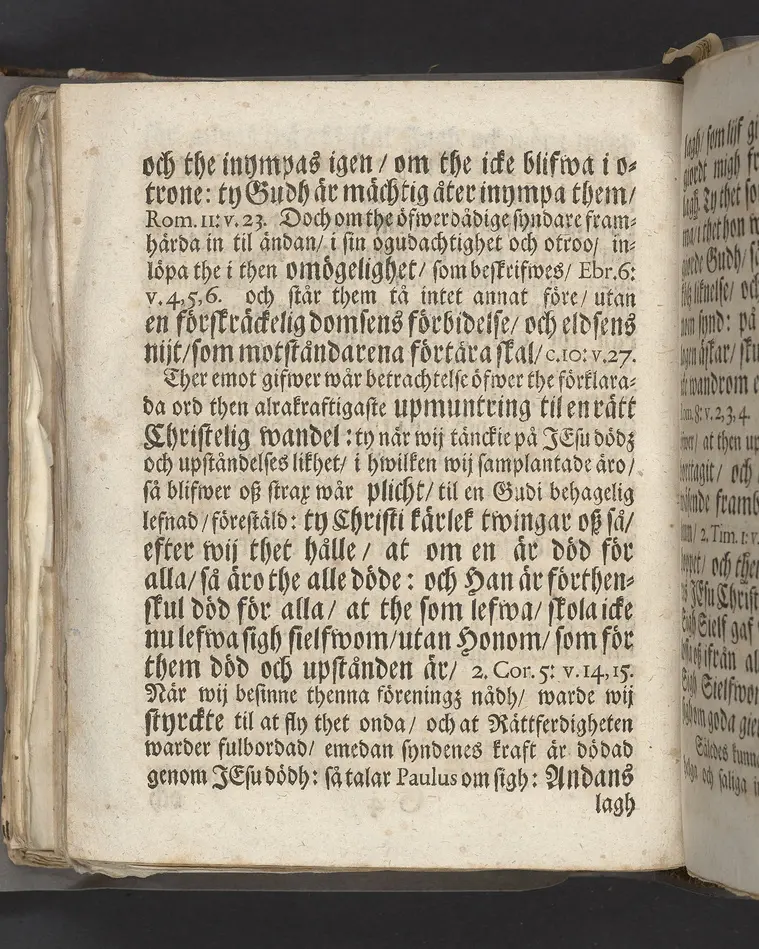 och the inympas igen / om the icke blifwa i o-
trone: ty Gudh är mächtig åter inympa them/
Rom. 11: v. 23. Doch om the öfwerdådige syndare fram-
hårda in til ändan/ i sin ogudachtighet och otroo/ in-
löpa the i then omögelighet/ som beskrifwes/ Ebr. 6:
v. 4, 5, 6. och står them tå intet annat före/ utan
en förskräckelig domsens förbidelse/ och eldsens
nijt/ som motståndarena förtära skal/ c. 10: v. 27.
Ther emot gifwer wår betrachtelse öfwer the förklara-
da ord then alrakraftigaste upmuntring til en rätt
Christelig wandel: ty når wij tänckie på JEsu dödz
och upståndelses likhet/ i hwilken wij samplantade äro/
så blifwer oß strax wår plicht/ til en Gudi behagelig
lefnad / förestäld: ty Christi kärlek twingar oß så/
efter wij thet hålle / at om en är död för
alla/ så äro the alle döde: och Han är förthen-
skul död för alla/ at the som lefwa/ skola icke
nu lefwa sigh sielfwom/ utan Honom/ som för
them död och upstånden är/ 2. Cor. 5: v. 14, 15.
När wij besinne thenna föreningz nådh/ warde wij
styrckte til at fly thet onda/ och at Rättferdigheten
warder fulbordad/ emedan syndenes kraft är dödad
genom JEsu dödh: så talar Paulus om sigh: Andans
lagh
lagh/ som lijf
2. Tim. 1: v.
JEsu Christ
Sigh Sielf gaf